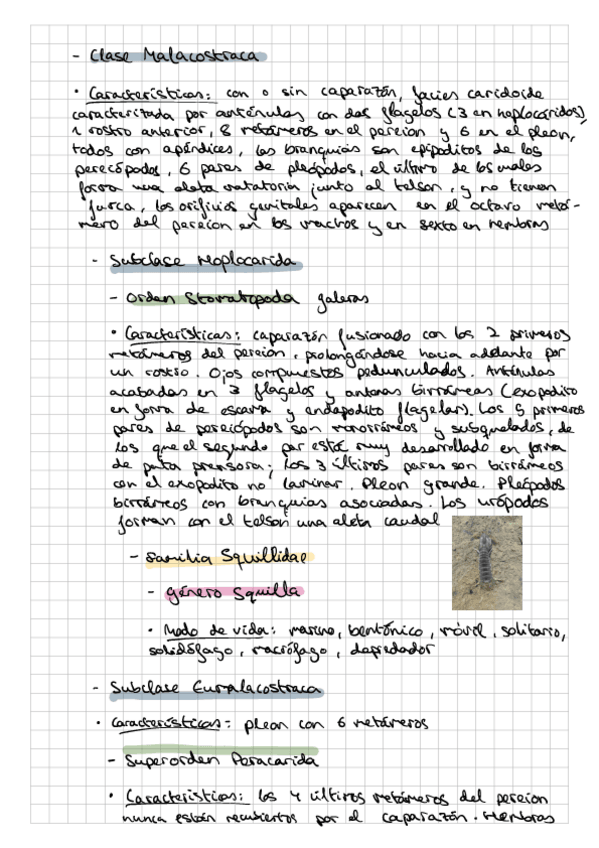 - Clase Malacostraca
• Características: con o sin caparazón, facies caridoide
caracterizada por anténulas con dos flagelos (3 en hoplocáridos)
1 rostro anterior, 8 metámeros en el pereion y 6 en el pleon,
todos con apéndices, las branquias son epipoditos de los
pereiópodos, 6 pares de pleópodos, el último de los cuales
forma una aleta natatoria junto al telson, y no tienen
furca, los orificios genitales aparecen en el octavo metá-
mero del pereion en los machos y en sexto en hembras
- Subclase Hoplocarida
- Orden Stomatopoda galeras
• Características: caparazón fusionado con los 2 primeros
metámeros del pereion, prolongándose hacia adelante por
un rostro. Ojos compuestos pedunculados. Anténulas
acabadas en 3 flagelos y antenas birrámeas (exopodito
en forma de escama y endopodito flagelar). Los 5 primeros
pares de pereiópodos son monorrámeos y subquelados, de
los que el segundo par está muy desarrollado en forma
de pata prensora; los 3 últimos pares son birrámeos
con el exopodito no laminar. Pleon grande. Pleópodos
birrámeos con branquias asociadas. Los urópodos
forman con el telson una aleta caudal
- Familia Squillidae
- género Squilla
• Modo de vida: marino, bentónico, móvil, solitario,
solidófago, macrófago, depredador
- Subclase Eumalacostraca
• Características: pleon con 6 metámeros
- Superorden Peracarida
• Características: los 4 últimos metámeros del pereion
nunca están recubiertos por el caparazón. Hembras